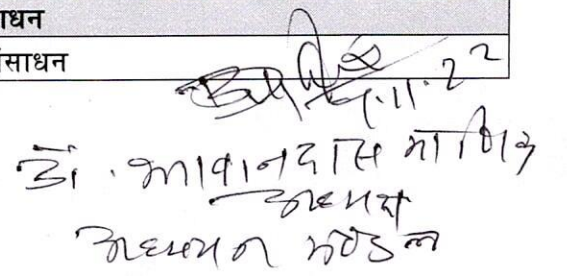 ाधन
ंसाधन
.11.22
डॉ. भगवानदास माणिक
अध्यक्ष
अध्ययन मण्डल